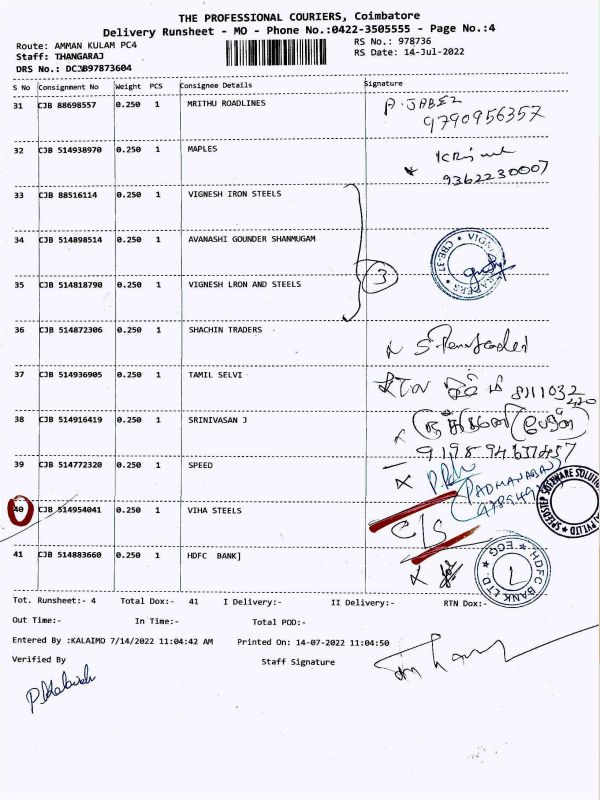 THE PROFESSIONAL COURIERS, Coimbatore
Delivery Runsheet - MO - Phone No.:0422-3505555 - Page No.:4
Route: AMMAN KULAM PC4 RS No.: 978736
Staff: THANGARAJ RS Date: 14-Jul-2022
DRS No.: DCJB97873604
S No Consignment No Weight PCS Consignee Details Signature
31 CJB 88698557 0.250 1 MRITHU ROADLINES P. JABEZ
9790956357
32 CJB 514938970 0.250 1 MAPLES
9362230007
33 CJB 88516114 0.250 1 VIGNESH IRON STEELS
34 CJB 514898514 0.250 1 AVANASHI GOUNDER SHANMUGAM
35 CJB 514818790 0.250 1 VIGNESH LRON AND STEELS 3
36 CJB 514872306 0.250 1 SHACHIN TRADERS
37 CJB 514936905 0.250 1 TAMIL SELVI
38 CJB 514916419 0.250 1 SRINIVASAN J
39 CJB 514772320 0.250 1 SPEED
PADMANABAN
40 CJB 514954041 0.250 1 VIHA STEELS C/S
41 CJB 514883660 0.250 1 HDFC BANK]
HDFC BANK LTD * ECG *
Tot. Runsheet:- 4 Total Dox:- 41 I Delivery:- II Delivery:- RTN Dox:-
Out Time:- In Time:- Total POD:-
Entered By :KALAIMO 7/14/2022 11:04:42 AM Printed On: 14-07-2022 11:04:50
Verified By Staff Signature